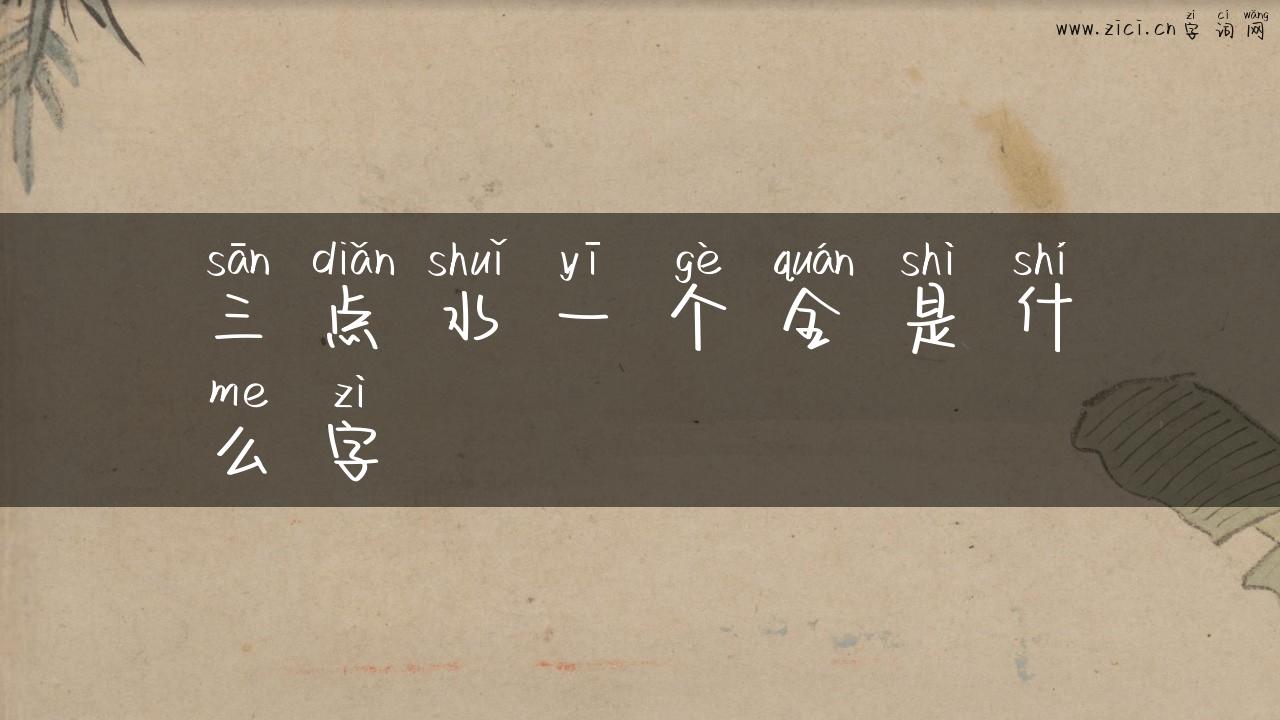 zì cí wǎng
www.zici.cn 字词网
sān diǎn shuǐ yī gè quán shì shí
三点水一个全是什
me zì
么字